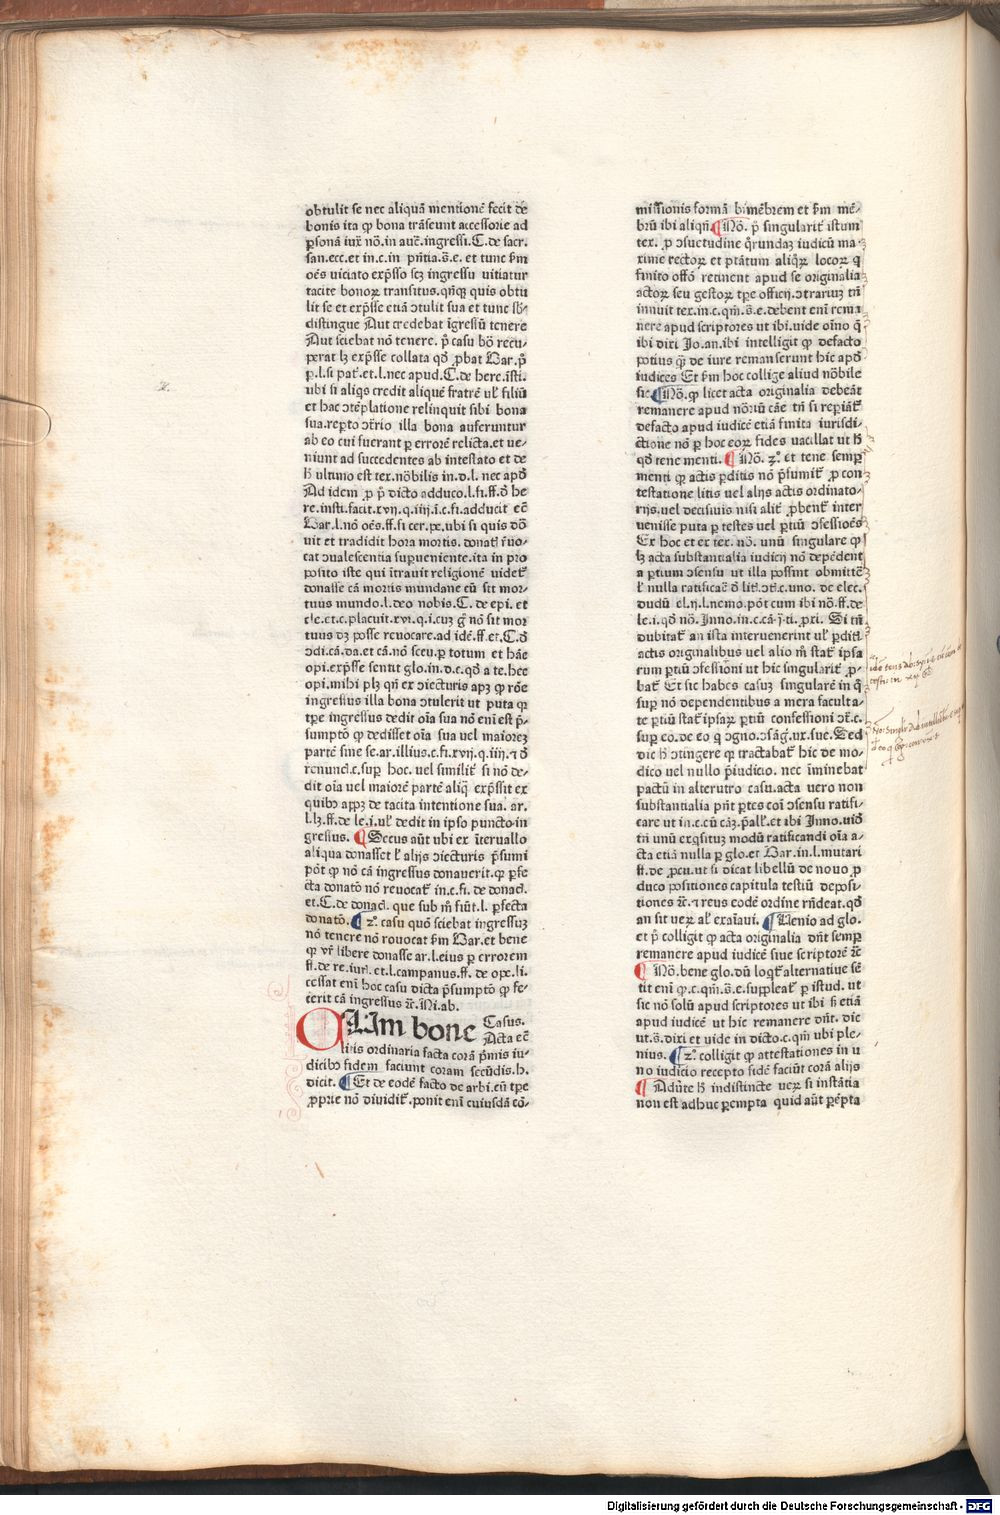 obtulit se nec aliquā mentionē fecit de
bonis ita ꝙ bona trāseunt accessorie ad
ꝑsonā iux̄ nō.in auc̄.ingressi.C.de sacr.
san.ecc.et in.c.in pn̄tia.s̄.e. et tunc ẜm
oēs viciato exp̄sso scꝫ ingressu vitiatur
tacite bonoꝝ transitus.qn̄qꝫ quis obtu
lit se et exp̄sse etiā ↄtulit sua et tunc
distingue Aut credebat īgressū tenere
Aut sciebat nō tenere. p̄ casu bō recu-
perat lꝫ exp̄sse collata qđ ꝓbat Bar.
.l.si pat̄.et.l.nec apud.C.de here.īsti.
ubi si aliqs credit aliquē fratrē ul̓ filiū
et hac ↄtēplatione relinquit sibi bona
sua.reꝑto ↄt̄rio illa bona auferuntur
ab eo cui fuerant ꝑ errorē relicta.et ue-
niunt ad succedentes ab intestato et de
ultimo est tex.nōbilis in.d.l. nec apđ
Ad idem ꝓ p̄ dicto adduco.l.fi.ff.đ he
re.insti.facit.xvij.q.iiij.ī.c.fi.adducit eē
Bar.l.nō oēs.ff.si cer.pe.ubi si quis dō
uit et tradidit hora mortis. donat̄ r̄uo-
cat ↄualescentia suꝑueniente.ita in pro
posito iste qui ītrauit religionē videt̄
donasse cā mortis mundane cū sit mor-
tuus mundo.l.deo nobis.C. de epi. et
cle.et.c.placuit.xvi.q.i.cuꝫ nō sit mor
tuus dꝫ posse reuocare.ad idē.ff.et.C.đ
ↄdi.cā.da.et cā.nō secu.ꝑ totum et hāc
opi.exp̄sse sentit glo.in.d.c.qđ a te.hec
opi.mihi plꝫ qn̄ ex ↄiecturis apꝫ ꝙ rōe
ingressus illa bona ↄtulerit ut puta ꝙ
tꝑe ingressus dedit oīa sua nō enī est p̄-
sumptō ꝙ dedisset oīa sua vel maiorez
partē sine se.ar.illius.c.fi.xvij.q.iiij.
renuncl.c.suꝑ hoc. uel similit̄ si nō de-
dit oīa uel maiorē partē exp̄ssit ex
quibꝰ appꝫ de tacita intentione sua. ar.
l.lꝫ.ff.de le.i.ul̓ dedit in ipso puncto in
gressus. ¶ Secus aūt ubi ex īteruallo
aliqua donasset alijs ↄiecturis p̄sumi
pōt ꝙ nō cā ingressus donauerit.ꝙ ꝑfe
cta donatō nō reuocat̄ in.c.fi. de donacl.
et.C.de donacl. que sub fiūt.l. ꝑfecta
donatō.¶ 2ᵒ. casu quō sciebat ingressuꝫ
nō tenere nō rouocat ẜm Bar.et bene
ꝙ vr̄ libere donasse ar.l.eius ꝑ errorem
ff.de re.iurl.et.l.campanus.ff. de ope.li.
cessat enī hoc casu dicta p̄sumptō ꝙ fe-
cerit cā ingressus ꝛc̄.Ni.ab.
CUm bone Casus.
Acta eē
litis ordinaria facta corā p̄mis iu-
dicibꝰ fidem faciunt coram secūdis.h.
dicit. ¶ Et de eodē facto de arbi.cū tꝑe
ꝓprie nō diuidit̄.ponit enī cuiusdā cō-
missionis formā bimēbrem et ẜm mē-
brū ibi aliqn̄.¶Nō. p̄ singularit̄ istum
tex. ꝓ ↄsuetudine qrundaꝫ iudicū ma
xime rectoꝝ et ptātum locoꝝ q
finito offō retinent apud se originalia
actoꝝ seu gestoꝝ tꝑe officij.ↄtrariuꝫ tn̄
innuit tex.in.c.qm̄.s̄.e.debent enī rema
nere apud scriptores ut ibi.uide oīno q̄
ibi dixi Jo.an.ibi intelligit ꝙ defacto
potius de iure remanserunt hic apđ
iudices Et ẜm hoc collige aliud nōbile
sic.¶Nō.ꝙ licet acta originalia debeāt
remanere apud nō.iū cāe tn̄ si reꝑiāt̄
defacto apud iudicē etiā finita iurisdi-
ctione nō ꝑ hoc eoꝝ fides uacillat ut
qđ tene menti. ¶ Nō. 2ᵒ.et tene semꝑ
menti ꝙ actis ꝑditis nō p̄sumit̄ ꝓ con
testatione litis uel alijs actis ordinato-
rijs.uel decisiuis nisi alit̄ ꝓbent̄ inter
uenisse puta ꝑ testes uel ꝑtiū ↄfessiōes
Ex hoc et ex tex. nō. unū singulare ꝙ
lꝫ acta substantialia iudicij nō depēdent
a ꝑtium ↄsensu ut illa possint obmittē
nulla ratificaē đ lit̄.ↄt̄.c.uno. de elec.
dudū el.ij.l.nemo.pōt cum ibi nō.ff.de
le.i.qđ nō. Inno.in.c.cā ti.ꝓxi. Si tn̄
dubitat̄ an ista interuenerint ul̓ ꝑdit̄
actis originalibus uel alio stat̄ ipsa
rum ꝑtiū ↄfessiōni ut hic singularit̄ ꝓ-
bat̄ Et sic habes casuꝫ singularē in q̄
suꝑ nō dependentibus a mera faculta-
te ꝑtiū stat̄ ipsaꝝ ꝑtiū confessioni ↄt̄.c.
suꝑ eo.de eo q ↄgno.ↄsāg.ux.sue. Sed
dic ↄtingere ꝙ tractabat̄ hic de mo-
dico uel nullo p̄iudicio. nec īminebat
pactū in alterutro casu.acta uero non
substantialia pn̄t ꝑtes coī ↄsensu ratifi-
care ut in.c.cū cāꝫ.p̄all̓.et ibi Inno.uiđ
tn̄ unū exqsituꝫ modū ratificandi oīa a-
cta etiā nulla ꝑ glo.et Bar.in.l.mutari
ff.de ꝓcu.ut si dicat libellū de nouo ꝓ
duco positiones capitula testiū deposi-
tiones ꝛc̄. reus eodē ordine rn̄deat.qđ
an sit ueꝝ al̓ exaīaui. ¶ Uenio ad glo.
et p̄ colligit ꝙ acta originalia dn̄t semꝑ
remanere apud iudicē siue scriptorē ꝛc̄
¶ Nō.bene glo.dū loqt̄ alternatiue sē
tit enī ꝙ.c.qm̄.s̄.e.suppleat̄ ꝑ istud. ut
sic nō solū apud scriptores ut ibi etiā
apud iudicē ut hic remanere dn̄t. dic
ut.s̄.dixi et uide in dicto.c.qm̄ ubi ple-
nius. ¶ 2ᵒ colligit ꝙ attestationes in u
no iudicio recepto fidē faciūt corā alijs
¶ Adūte indistincte ueꝝ si instātia
non est adhuc ꝑempta quid aūt ꝑēpta
Digitalisierung gefördert durch die Deutsche Forschungsgemeinschaft - DFG